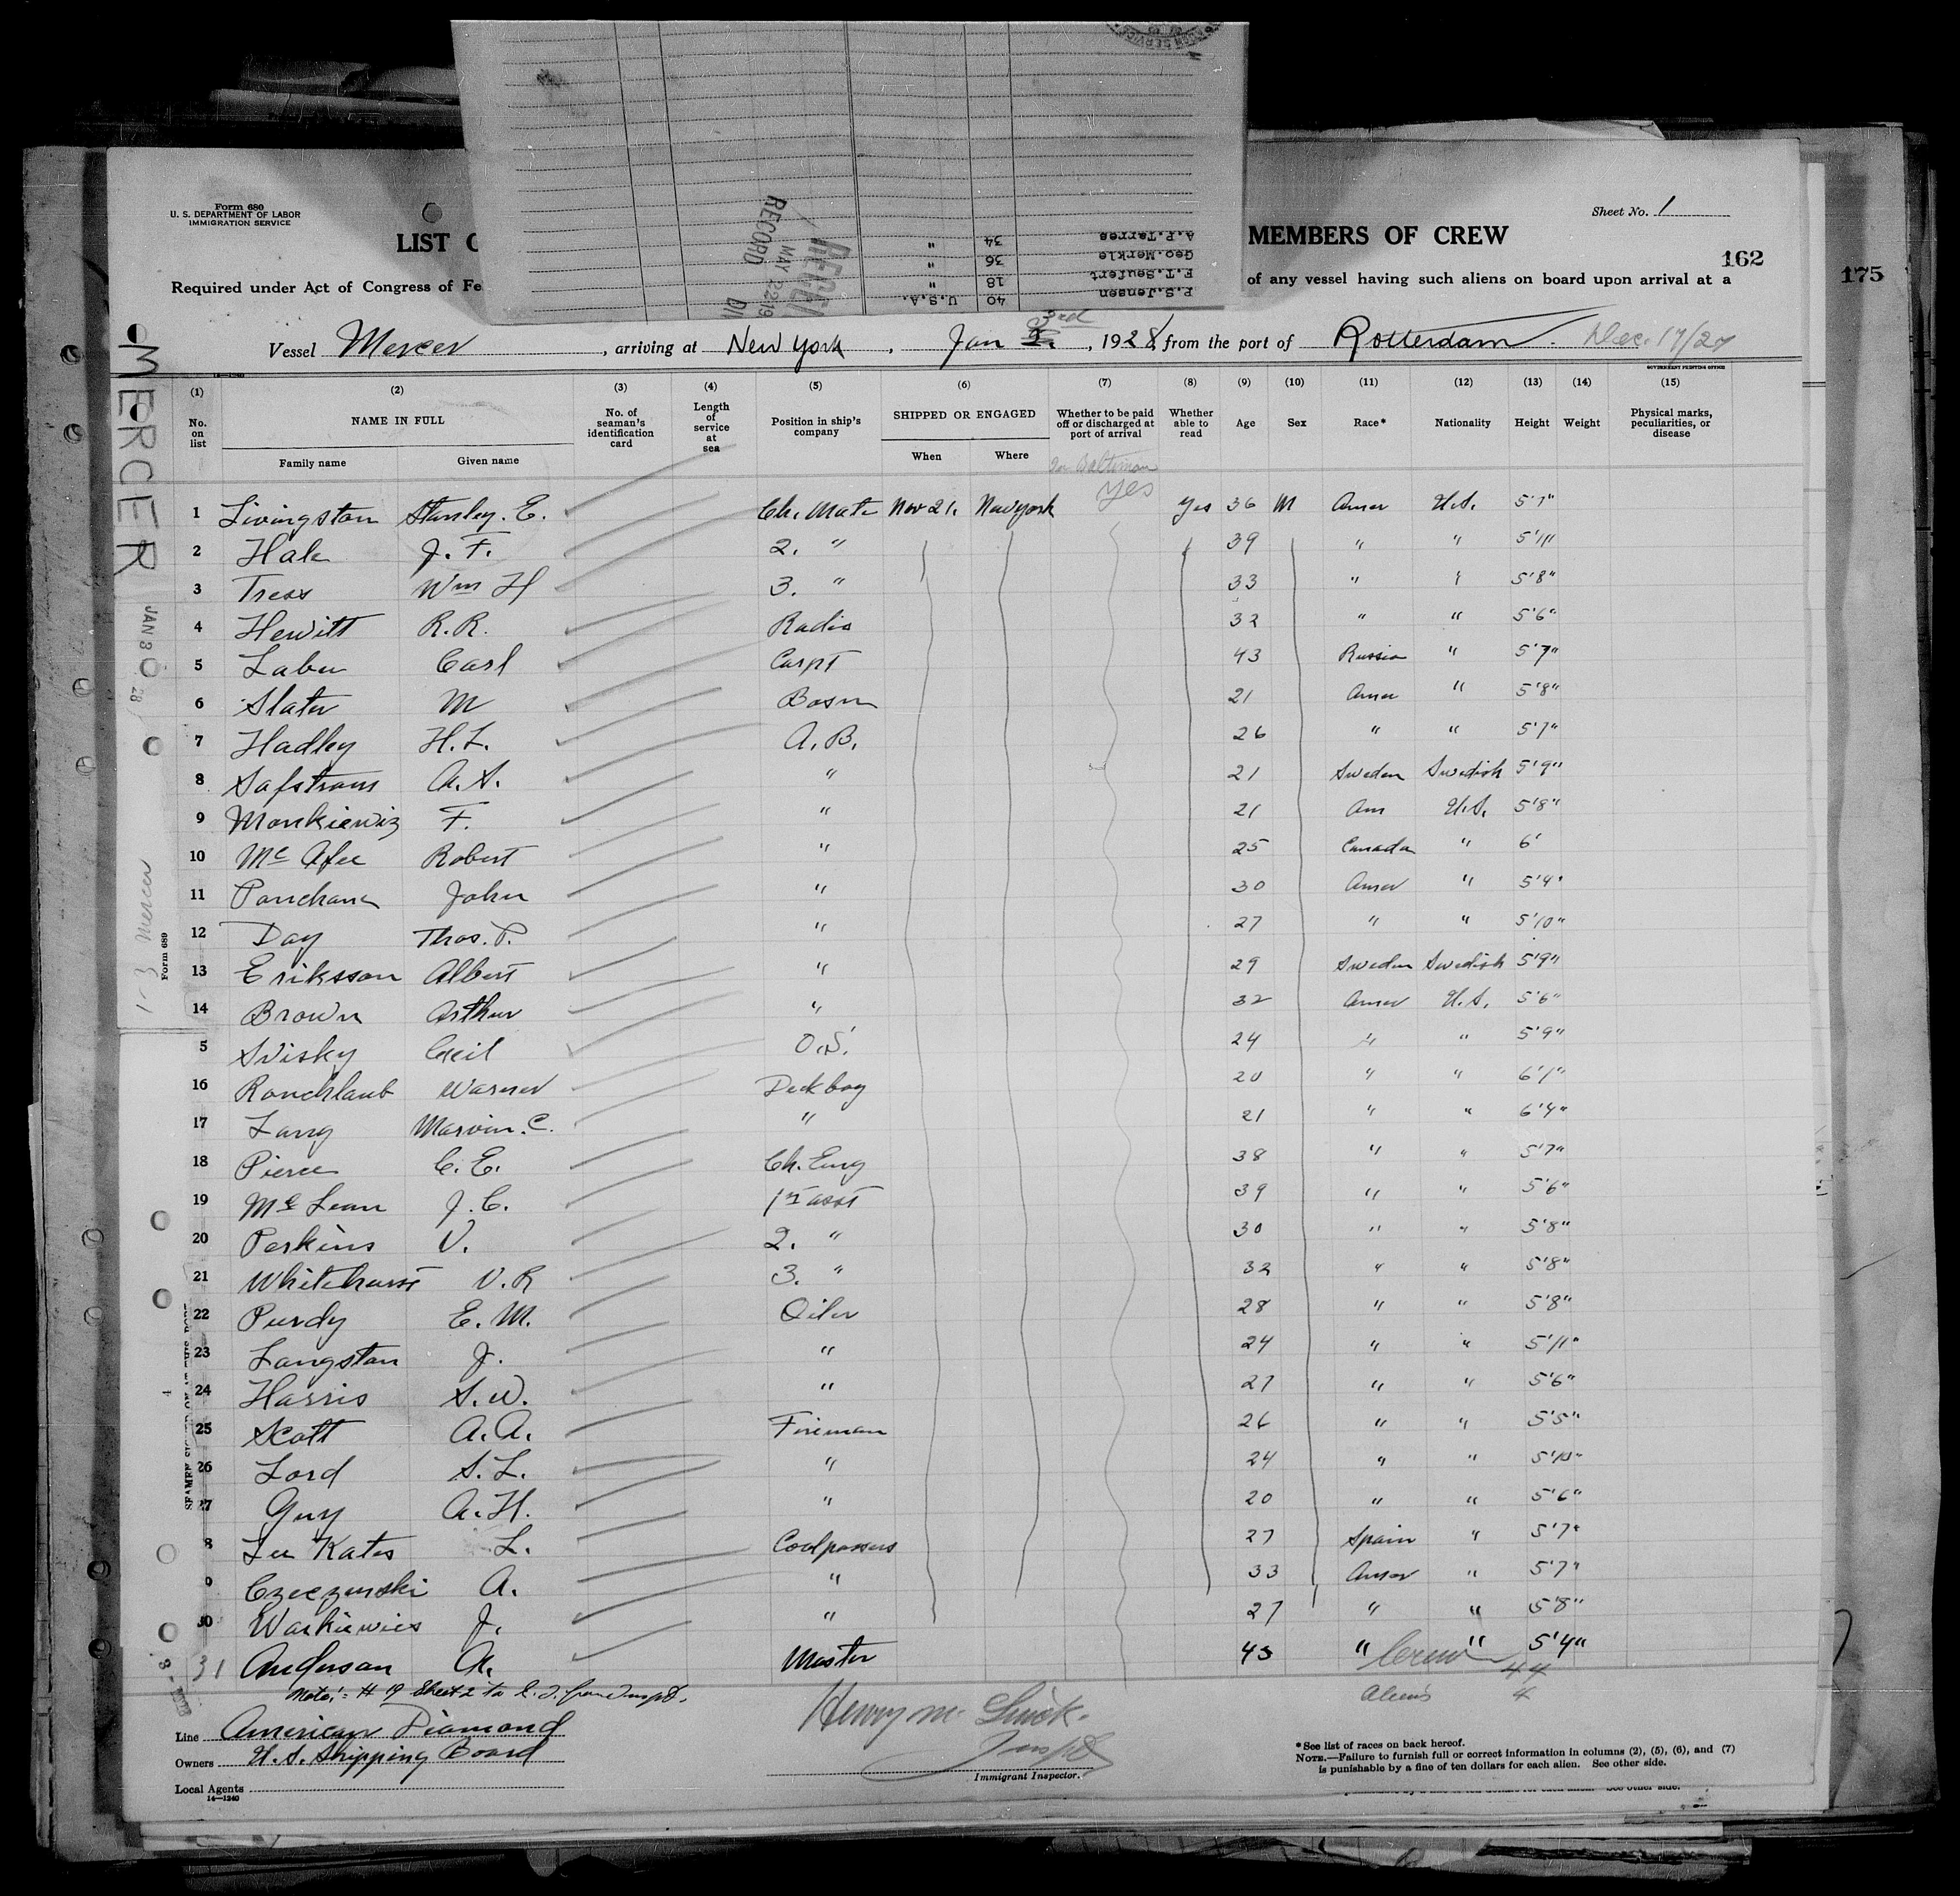 Form 680
U. S. DEPARTMENT OF LABOR
IMMIGRATION SERVICE
Sheet No. 1
LIST O
MEMBERS OF CREW
162
175
Required under Act of Congress of Fe
of any vessel having such aliens on board upon arrival at a
P.S.Jensen 40 U.S.A.
F.T.Seufert 18 "
Geo.Merkle 36 "
A.P.Tarres 34 "
RECORD
MAY 22 19
Vessel Mercer , arriving at New York , Jan 3rd , 1928, from the port of Rotterdam. Dec. 17/27
GOVERNMENT PRINTING OFFICE
(1) (2) (3) (4) (5) (6) (7) (8) (9) (10) (11) (12) (13) (14) (15)
No. on list NAME IN FULL No. of seaman's identification card Length of service at sea Position in ship's company SHIPPED OR ENGAGED Whether to be paid off or discharged at port of arrival Whether able to read Age Sex Race* Nationality Height Weight Physical marks, peculiarities, or disease
Family name Given name When Where
1 Livingston Stanley. E. Ch. Mate Nov 21. New York yes Yes 36 M Amer U.S. 5'7"
2 Hale J. F. 2. " 39 " " 5'11"
3 Tress Wm H 3. " 33 " " 5'8"
4 Hewitt R.R. Radio 32 " " 5'6"
5 Laber Carl Carpt 43 Russia " 5'7"
6 Slater M Bosn 21 Amer " 5'8"
7 Hadley H.L. A.B. 26 " " 5'7"
8 Safstrom A.S. " 21 Sweden Swedish 5'9"
9 Monkiewiz F. " 21 Am U.S. 5'8"
10 Mc Afee Robert " 25 Canada " 6'
11 Ponchan John " 30 Amer " 5'4"
12 Day Thos. P. " 27 " " 5'10"
13 Eriksson Albert " 29 Sweden Swedish 5'9"
14 Brown Arthur " 32 Amer U.S. 5'6"
5 Svisky Cecil O.S. 24 " " 5'9"
16 Ronchlaub Warner Deck boy 20 " " 6'1"
17 Lang Marvin. C. " 21 " " 6'4"
18 Pierce C. E. Ch. Eng 38 " " 5'7"
19 Mc Lean J. C. 1st asst 39 " " 5'6"
20 Perkins V. 2. " 30 " " 5'8"
21 Whitehurst V. R 3. " 32 " " 5'8"
22 Purdy E. M. Oiler 28 " " 5'8"
23 Langston J. " 24 " " 5'11"
24 Harris S. W. " 27 " " 5'6"
25 Scott A. A. Fireman 26 " " 5'5"
26 Lord S. L. " 24 " " 5'10"
27 Guy A. H. " 20 " " 5'6"
8 Lee Kates L. Coalpassers 27 Spain " 5'7"
9 Czeczurski A. " 33 Amer " 5'7"
30 Waskiewics J. " 27 " " 5'8"
31 Anderson A. Master 43 " " 5'4"
Crew 44
Aliens 4
Note: # 19 Sheet 2
Line American Diamond
Owners U.S. Shipping Board
Local Agents
14—1240
Henry M.
Immigrant Inspector.
*See list of races on back hereof.
NOTE.—Failure to furnish full or correct information in columns (2), (5), (6), and (7)
is punishable by a fine of ten dollars for each alien. See other side.
MERCER
JAN 3
28
1-3 Mercer
Form 689